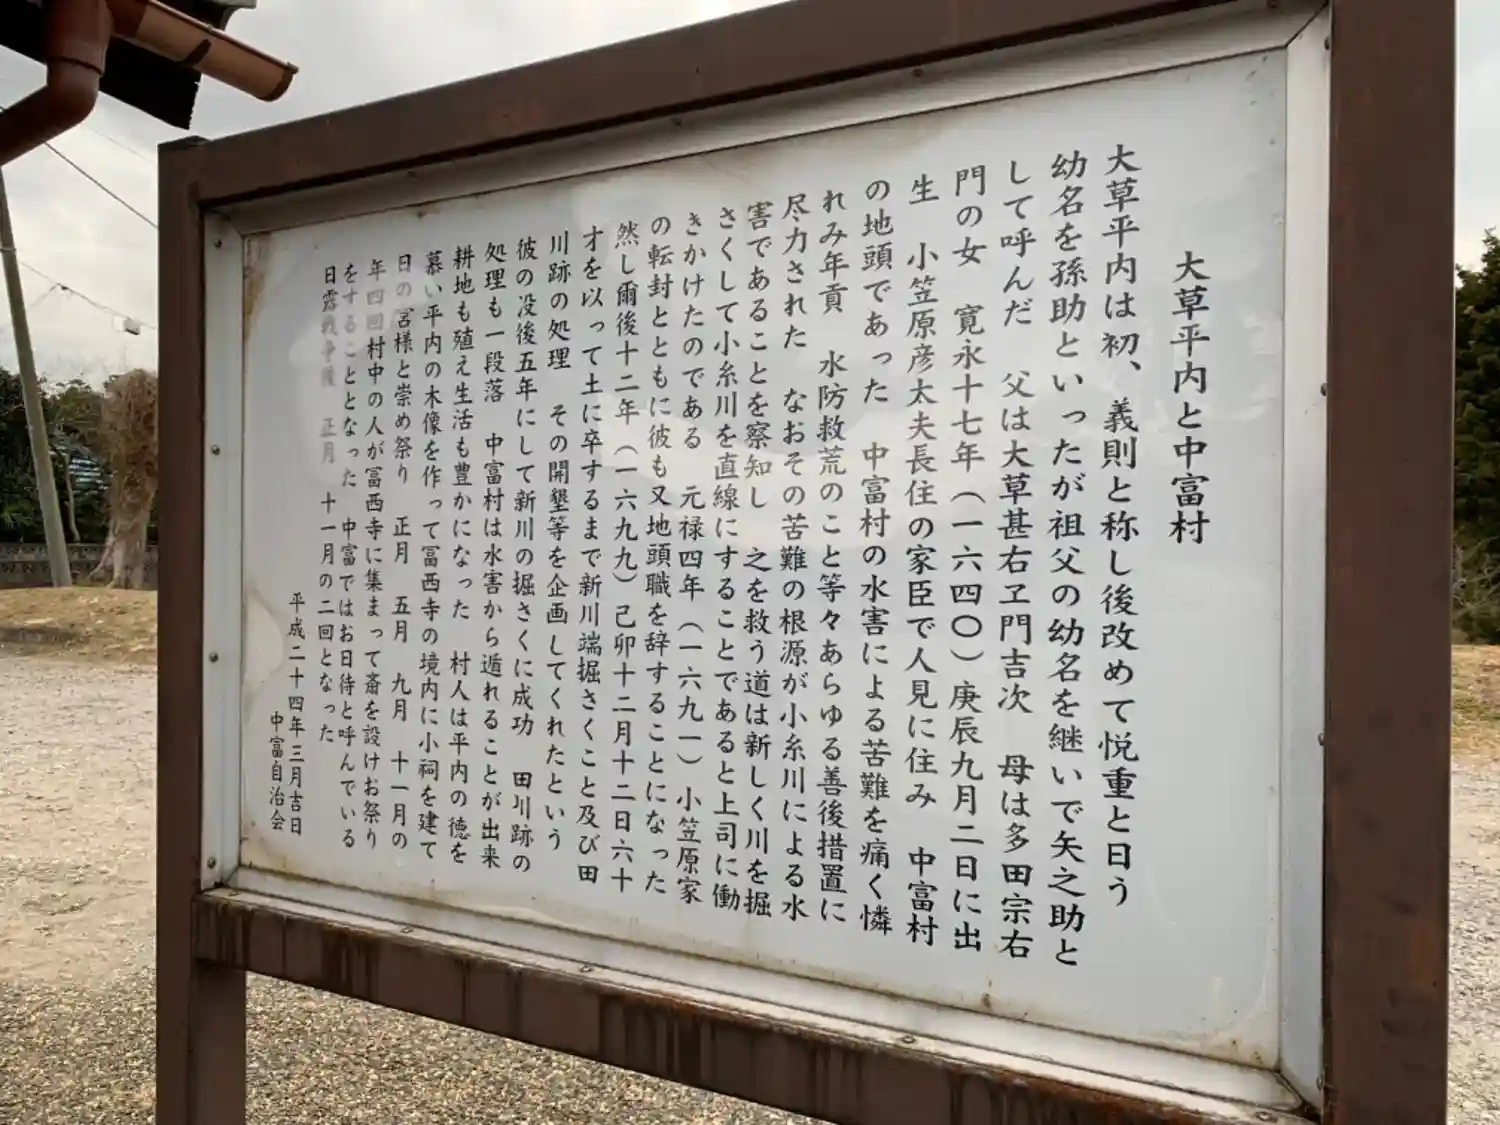 大草平内と中富村
大草平内は初、義則と称し後改めて悦重と日う
幼名を孫助といったが祖父の幼名を継いで矢之助と
して呼んだ　父は大草甚右ヱ門吉次　母は多田宗右
門の女　寛永十七年（一六四〇）庚辰九月二日に出
生　小笠原彦太夫長住の家臣で人見に住み　中富村
の地頭であった　中富村の水害による苦難を痛く憐
れみ年貢　水防救荒のこと等々あらゆる善後措置に
尽力された　なおその苦難の根源が小糸川による水
害であることを察知し　之を救う道は新しく川を掘
さくして小糸川を直線にすることであると上司に働
きかけたのである　元禄四年（一六九一）小笠原家
の転封とともに彼も又地頭職を辞することになった
然し爾後十二年（一六九九）己卯十二月十二日六十
才を以って土に卒するまで新川端掘さくこと及び田
川跡の処理　その開墾等を企画してくれたという
彼の没後五年にして新川の掘さくに成功　田川跡の
処理も一段落　中富村は水害から遁れることが出来
耕地も殖え生活も豊かになった　村人は平内の徳を
慕い平内の木像を作って冨西寺の境内に小祠を建て
日の宮様と崇め祭り　正月　五月　九月　十一月の
年四回村中の人が冨西寺に集まって斎を設けお祭り
をすることとなった　中富ではお日待と呼んでいる
日露戦争後　正月　十一月の二回となった
平成二十四年三月吉日
中富自治会